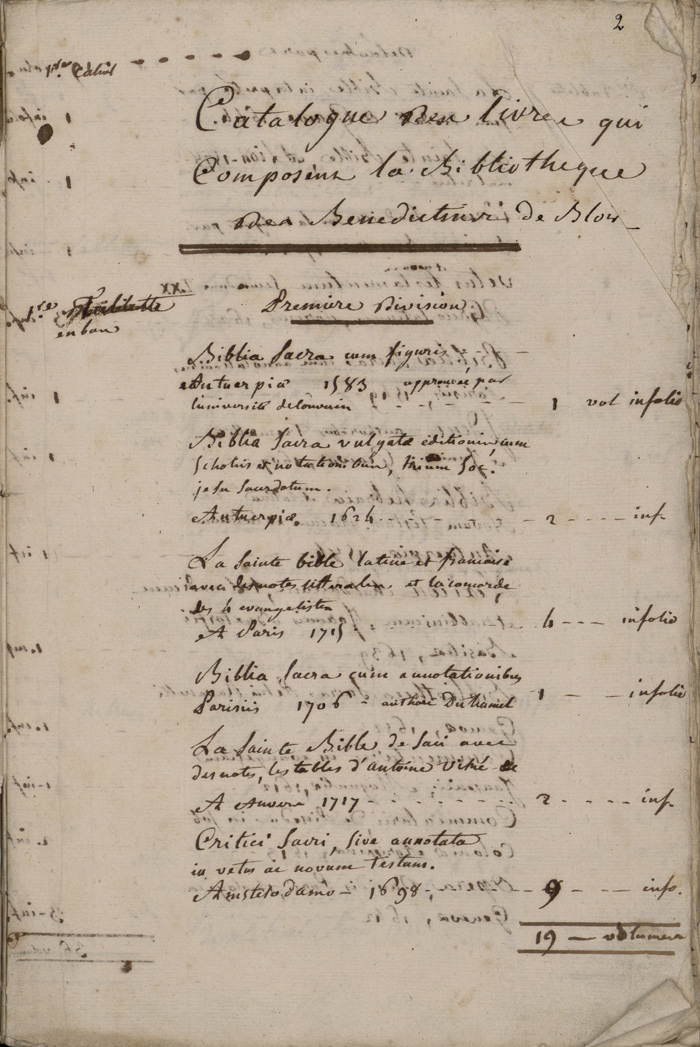 2
1er Cahier
Catalogue des livres qui
Composent la Bibliotheque
des Benedictins de Blois
1re Tablette
en bas
Premiere division
Biblia Sacra cum figuris
Antuerpiæ 1583 approuvée par
l'université de Louvain - 1 vol infolio
Biblia Sacra vulgatæ editionis, cum
Scholiis et notationibus, trium Soc.
jesu Sacerdotum.
Antuerpiæ. 1624 - 2 - - - - inf.
La Sainte bible latine et francaise
avec des notes litterales et la concorde
des 4 evangelistes
A Paris 1715 - 4 - - - infolio
Biblia Sacra cum annotationibus
Parisiis 1706 - authore Du hamel - 1 - - infolio
La Sainte Bible de Saci avec
des notes, les tables d'antoine Vitré &c
A Anvers 1717 - - - - - - - 2 - - - - inf.
Critici Sacri, sive annotata
in vetus ac novum Testam.
Amstelodamo - 1698 - 9 - - - - info.
19 - volumes